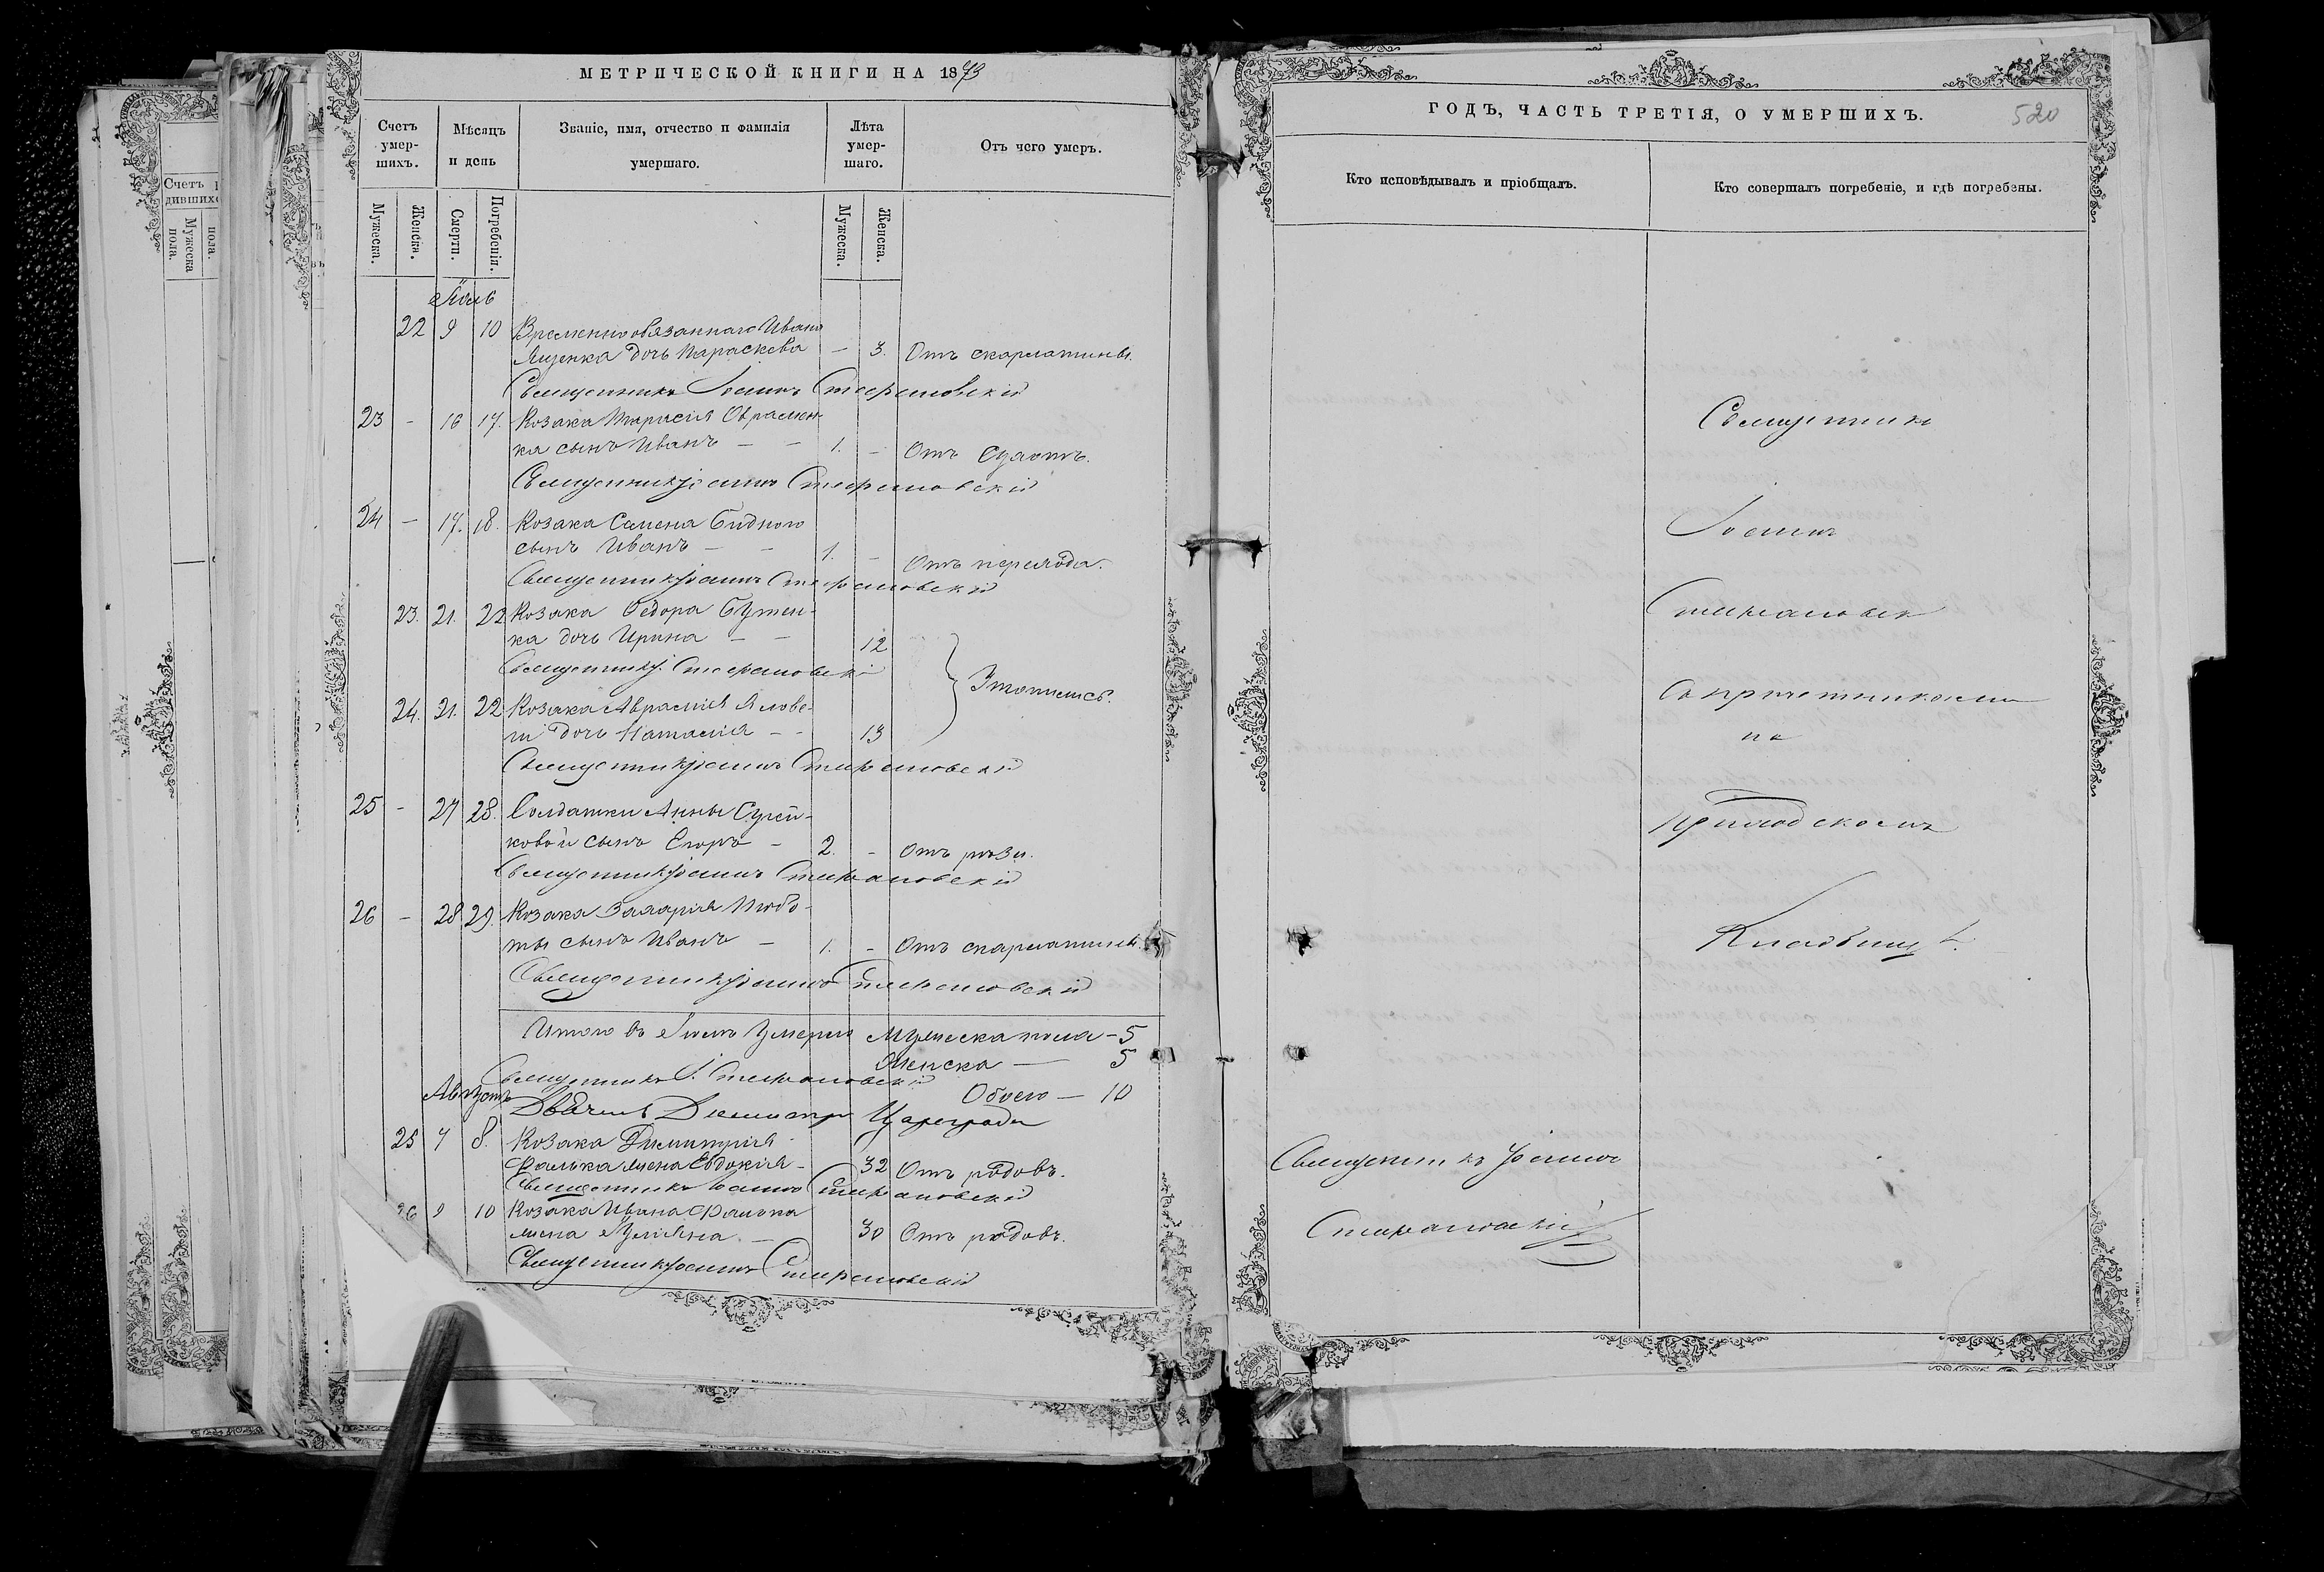 МЕТРИЧЕСКОЙ КНИГИ НА 1873
Счетъ умер-шихъ.
Мѣсяцъ и день
Званіе, имя, отчество и фамилія умершаго.
Лѣта умер-шаго.
Отъ чего умеръ.
Мужеска.
Женска.
Смерти.
Погребенія.
Мужеска.
Женска.
Іюль
22 9 10 Временнообязаннаго Ивана
Яценка дочь Параскева – 3. Отъ скарлатины.
Священникъ Іоаннъ Стефановскій
23 – 16 17. Козака Тарасія Авраменка
сынъ Иванъ – – 1. –
Священникъ Іоаннъ Стефановскій
24 – 17. 18. Козака Семена Бидного
сынъ Иванъ – – 1. –
Священникъ Іоаннъ Стефановскій
23. 21. 22 Козака Ѳедора Бутен-
ка дочь Ирина – – 12
Священникъ І. Стефановскій
24. 21. 22 Козака Аврамія Ялове-
дочь Наталія – – 13
Священникъ Іоаннъ Стефановскій
25 – 27 28. Солдатки Анны
ковой сынъ Егоръ – 2. –
Священникъ Іоаннъ Стефановскій
26 – 28 29. Козака Захарія
ты сынъ Иванъ – 1. – Отъ скарлатины.
Священникъ Іоаннъ Стефановскій
Итого въ Іюлѣ Умерло Мужеска пола – 5
Женска – 5
Священникъ І. Стефановскій
Обоего – 10
Августъ
25 7 8. Козака Димитрія
Фалька жена Евдокія – 32 Отъ родовъ.
Священникъ Іоаннъ Стефановскій
26 9 10 Козака Ивана Фалька
жена Уліяна. – 30 Отъ родовъ.
Священникъ Іоаннъ Стефановскій
ГОДЪ, ЧАСТЬ ТРЕТІЯ, О УМЕРШИХЪ.
520
Кто исповѣдывалъ и пріобщалъ.
Кто совершалъ погребеніе, и гдѣ погребены.
Священникъ
Іоаннъ
Стефановскій
съ причетниками
на
Приходскомъ
Кладбищѣ.
Священникъ Іоаннъ
Стефановскій
Счетъ
дившихс
Мужеска пола.
пола.